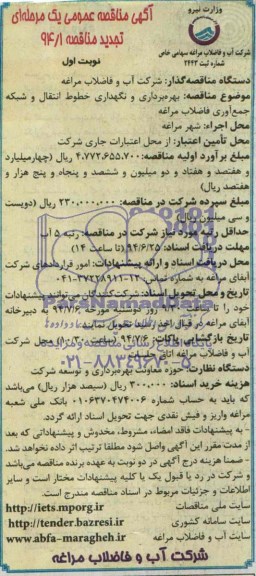 وزارت نیرو
شرکت آب و فاضلاب مراغه سهامی خاص
شماره ثبت ۲۴۴۳
آگهی مناقصه عمومی یک مرحله‌ای
تجدید مناقصه ۹۴/۱
نوبت اول
دستگاه مناقصه‌گذار: شرکت آب و فاضلاب مراغه
موضوع مناقصه: بهره‌برداری و نگهداری خطوط انتقال و شبکه
جمع‌آوری فاضلاب مراغه
محل اجراء: شهر مراغه
محل تأمین اعتبار: از محل اعتبارات جاری شرکت
مبلغ برآورد اولیه مناقصه: ۴.۷۷۲.۶۵۵.۷۰۰ ریال (چهارمیلیارد
و هفتصد و هفتاد و دو میلیون و ششصد و پنجاه و پنج هزار و
هفتصد ریال)
مبلغ سپرده شرکت در مناقصه: ۲۳۰.۰۰۰.۰۰۰ ریال (دویست
و سی میلیون ریال)
حداقل رتبه مورد نیاز شرکت در مناقصه: رتبه ۵ آب
مهلت دریافت اسناد: ۹۴/۶/۲۵ (تا ساعت ۱۴)
محل دریافت اسناد و ارائه پیشنهادات: امور قراردادهای شرکت
آبفای مراغه به شماره تماس:
تاریخ و محل تحویل اسناد: شرکت‌کنندگان می‌توانند پیشنهادات
خود را تا ساعت روز دوشنبه مورخه به دبیرخانه
آبفای مراغه در قبال اخذ رسید تحویل نمایند.
تاریخ بازگشایی پاکات:
و فاضلاب مراغه
دستگاه نظارت: حوزه معاونت بهره‌برداری و توسعه شرکت
هزینه خرید اسناد: ۳۰۰.۰۰۰ ریال (سیصد هزار ریال) می‌باشد
که باید به حساب شماره ۰۱۰۶۳۷۰۴۷۴۰۰۶ بانک ملی شعبه
مراغه واریز و فیش نقدی جهت تحویل اسناد ارائه گردد.
- به پیشنهادات فاقد امضاء، مشروط، مخدوش و پیشنهاداتی که بعد
از مدت مقرر این آگهی واصل شود مطلقا ترتیب اثر داده نخواهد شد.
- ضمنا هزینه درج آگهی در دو نوبت به عهده برنده مناقصه می‌باشد
و شرکت در رد یا قبول یک یا کلیه پیشنهادات مختار است و سایر
اطلاعات و جزئیات مربوط در اسناد مناقصه مندرج است.
سایت ملی مناقصات http://iets.mporg.ir
سایت سامانه کشوری http://tender.bazresi.ir
سایت آب و فاضلاب مراغه www.abfa-maragheh.ir
شرکت آب و فاضلاب مراغه
ParsNamadData
۰۲۱-۸۸۳۴۹۶۷۰-۵